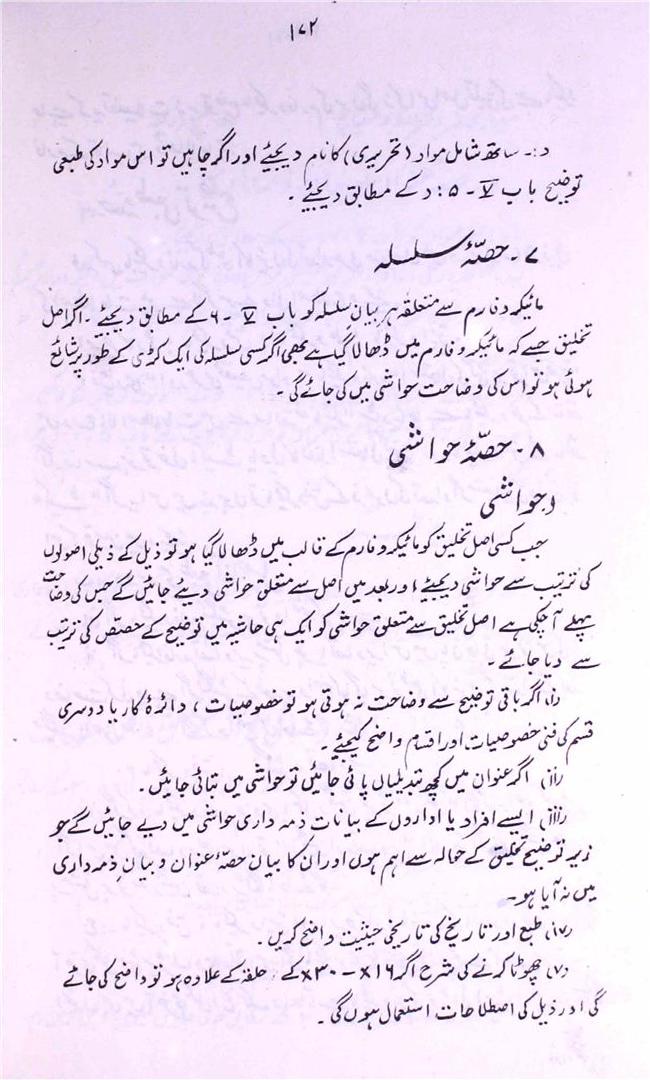 ۱۷۲
د :۔ ساتھ شامل مواد (تحریری) کا نام دیجئیے اور اگر چاہیں تو اس مواد کی طبعی
توضیح باب V ۔ ۵ : د کے مطابق دیجئیے ۔
۷ ۔ حصّۂ سلسلہ
مائیکروفارم سے متعلقہ ہر بیانِ سلسلہ کو باب V ۔ ۶ کے مطابق دیجئیے ۔ اگر اصل
تخلیق جسے کہ مائیکروفارم میں ڈھالا گیا ہے بھی اگر کسی سلسلہ کی ایک کڑی کے طور پر شائع
ہوئی ہو تو اس کی وضاحت حواشی میں کی جائے گی ۔
۸ ۔ حصّۂ حواشی
حواشی
جب کسی اصل تخلیق کو مائیکروفارم کے قالب میں ڈھالا گیا ہو تو ذیل کے ذیلی اصولوں
کی ترتیب سے حواشی دیجیئے اور بعد میں اصل سے متعلق حواشی دیئے جائیں گے جس کی وضاحت
پہلے آ چکی ہے اصل تخلیق سے متعلق حواشی کو ایک ہی حاشیہ میں توضیح کے حصص کی ترتیب
سے دیا جائے ۔
(i) اگر باقی توضیح سے وضاحت نہ ہوتی ہو تو خصوصیات ، دائرۂ کار یا دوسری
قسم کی فنی خصوصیات اور اقسام واضح کیجیئے ۔
(ii) اگر عنوان میں کچھ تبدیلیاں پائی جائیں تو حواشی میں بتائی جائیں ۔
(iii) ایسے افراد یا اداروں کے بیانات ذمہ داری حواشی میں دیے جائیں گے جو
زیر توضیح تخلیق کے حوالہ سے اہم ہوں اور ان کا بیان حصّۂ عنوان و بیانِ ذمہ داری
میں نہ آیا ہو ۔
(iv) طبع اور تاریخ کی تاریخی حیثیت واضح کریں ۔
(v) چھوٹا کرنے کی شرح اگر ۱۶x – ۳۰x کے حلقہ کے علاوہ ہو تو واضح کی جائے
گی اور ذیل کی اصطلاحات استعمال ہوں گی ۔